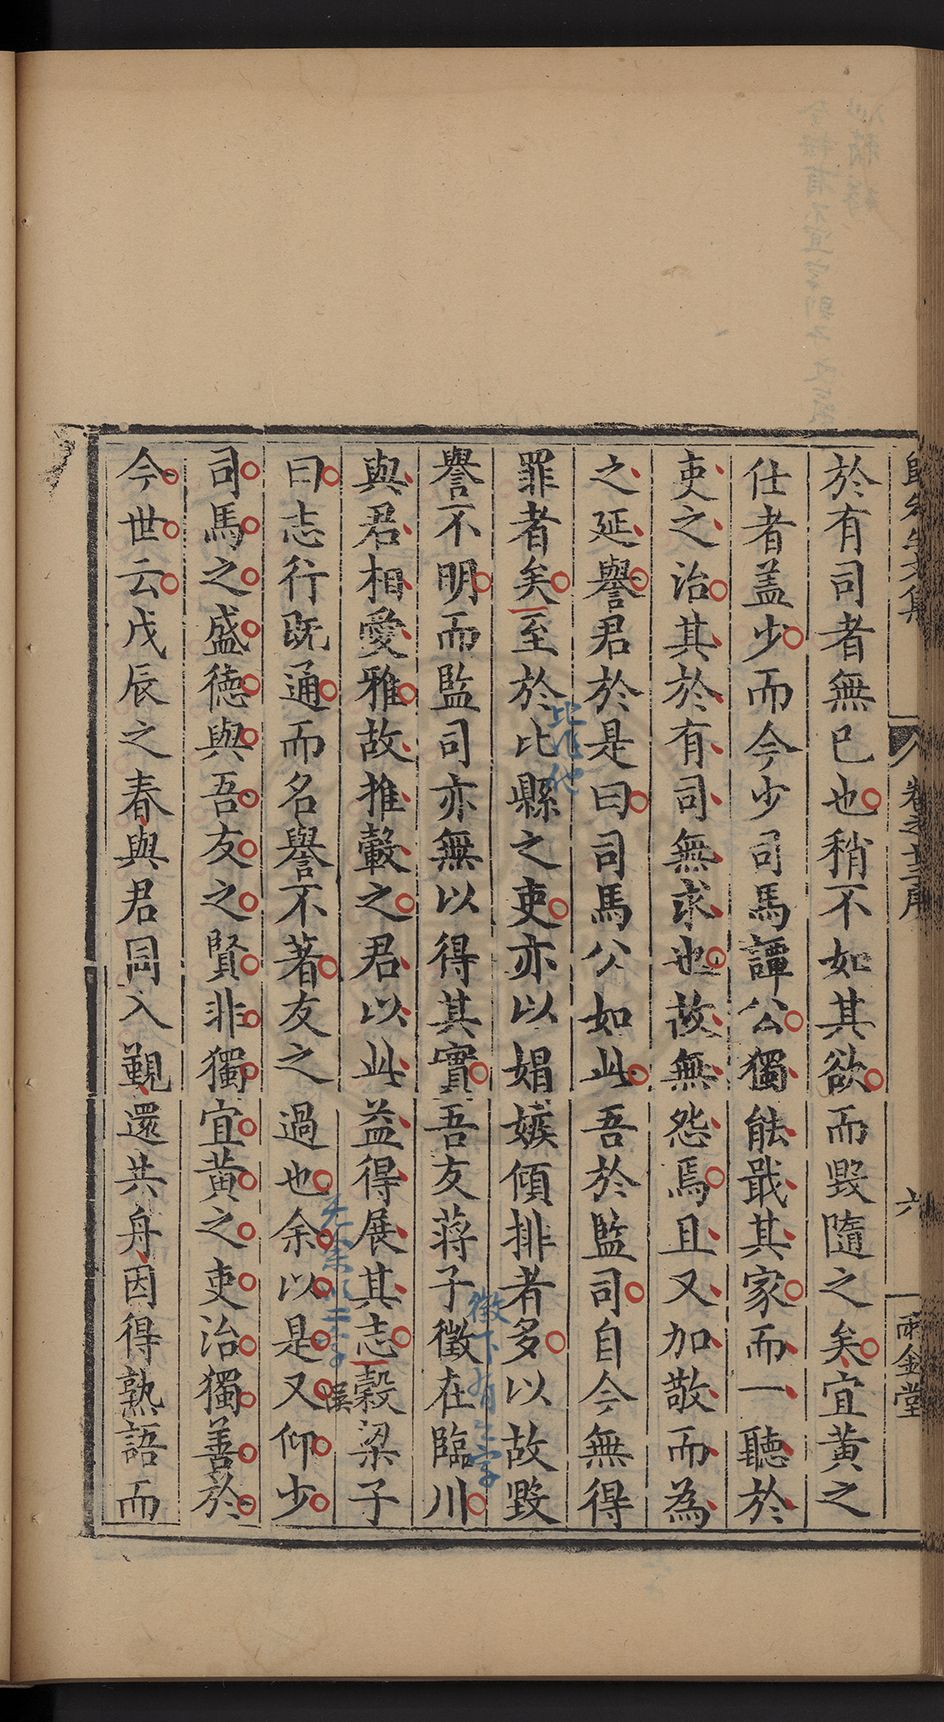 於有司者無已也稍不如其欲而毀隨之矣宜黃之
仕者盖少而今少司馬譚公獨能戢其家而一聽於
吏之治其於有司無求也故無怨焉且又加敬而為
之延譽君於是曰司馬公如此吾於監司自今無得
罪者矣至於比縣之吏亦以媢嫉傾排者多以故毀
譽不明而監司亦無以得其實吾友蔣子徵在臨川
與君相愛雅故推轂之君以此益得展其志穀梁子
曰志行旣通而名譽不著友之過也余以是又仰少
司馬之盛德與吾友之賢非獨宜黃之吏治獨善於
今世云戊辰之春與君同入覲還共舟因得熟語而
六
雨金堂
比作他
徵下有三字